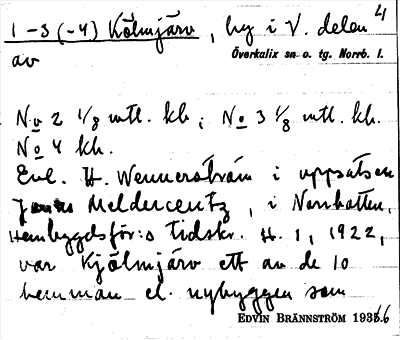 4
1-3 (-4) Kölmjärv, by i V. delen
av Överkalix sn o. tg. Norrb. l.
No 2 1/8 mtl. kh; No 3 1/8 mtl. kh.
No 4 kh.
Enl. H. Wennerström i uppsatsen
Jonas Meldercreutz, i Norrbotten,
Hembygdsför:s tidskr. H. 1, 1922,
var Kjölmjärv ett av de 10
hemman el. nybyggen som
EDVIN BRÄNNSTRÖM 193